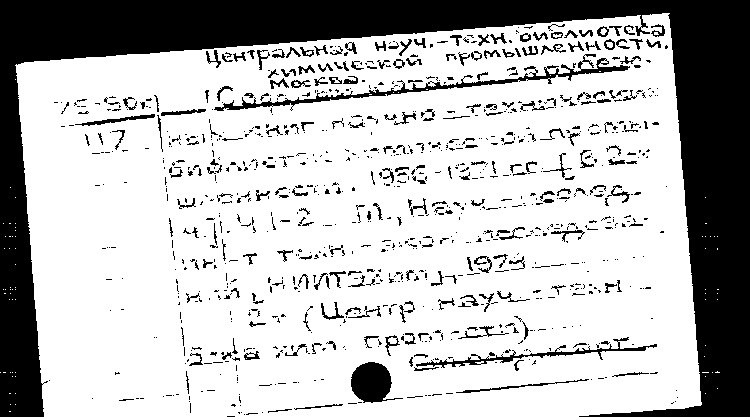 Центральная науч.-техн. библиотека
химической промышленности.
Москва.
75-90к Сводный каталог зарубеж-
117 ных книг научно-технических
библиотек химической промы-
шленности. 1956-1971 гг. [В 2-х
ч.]. Ч 1-2 М., Науч.-исслед.
ин-т техн.-экон. исследова-
ний "НИИТЭХим", 1973
2 т (Центр науч.-техн
б-ка хим. пром-сти)
См. след. карт.